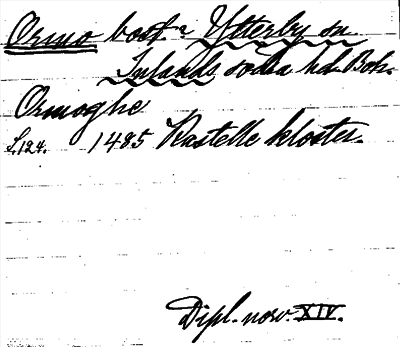 Ormo bost. i Ytterby sn.
Inlands södra hd. Boh.
Ormoghe
S. 124. 1485 Kastelle kloster.
Dipl. norv. XIV.